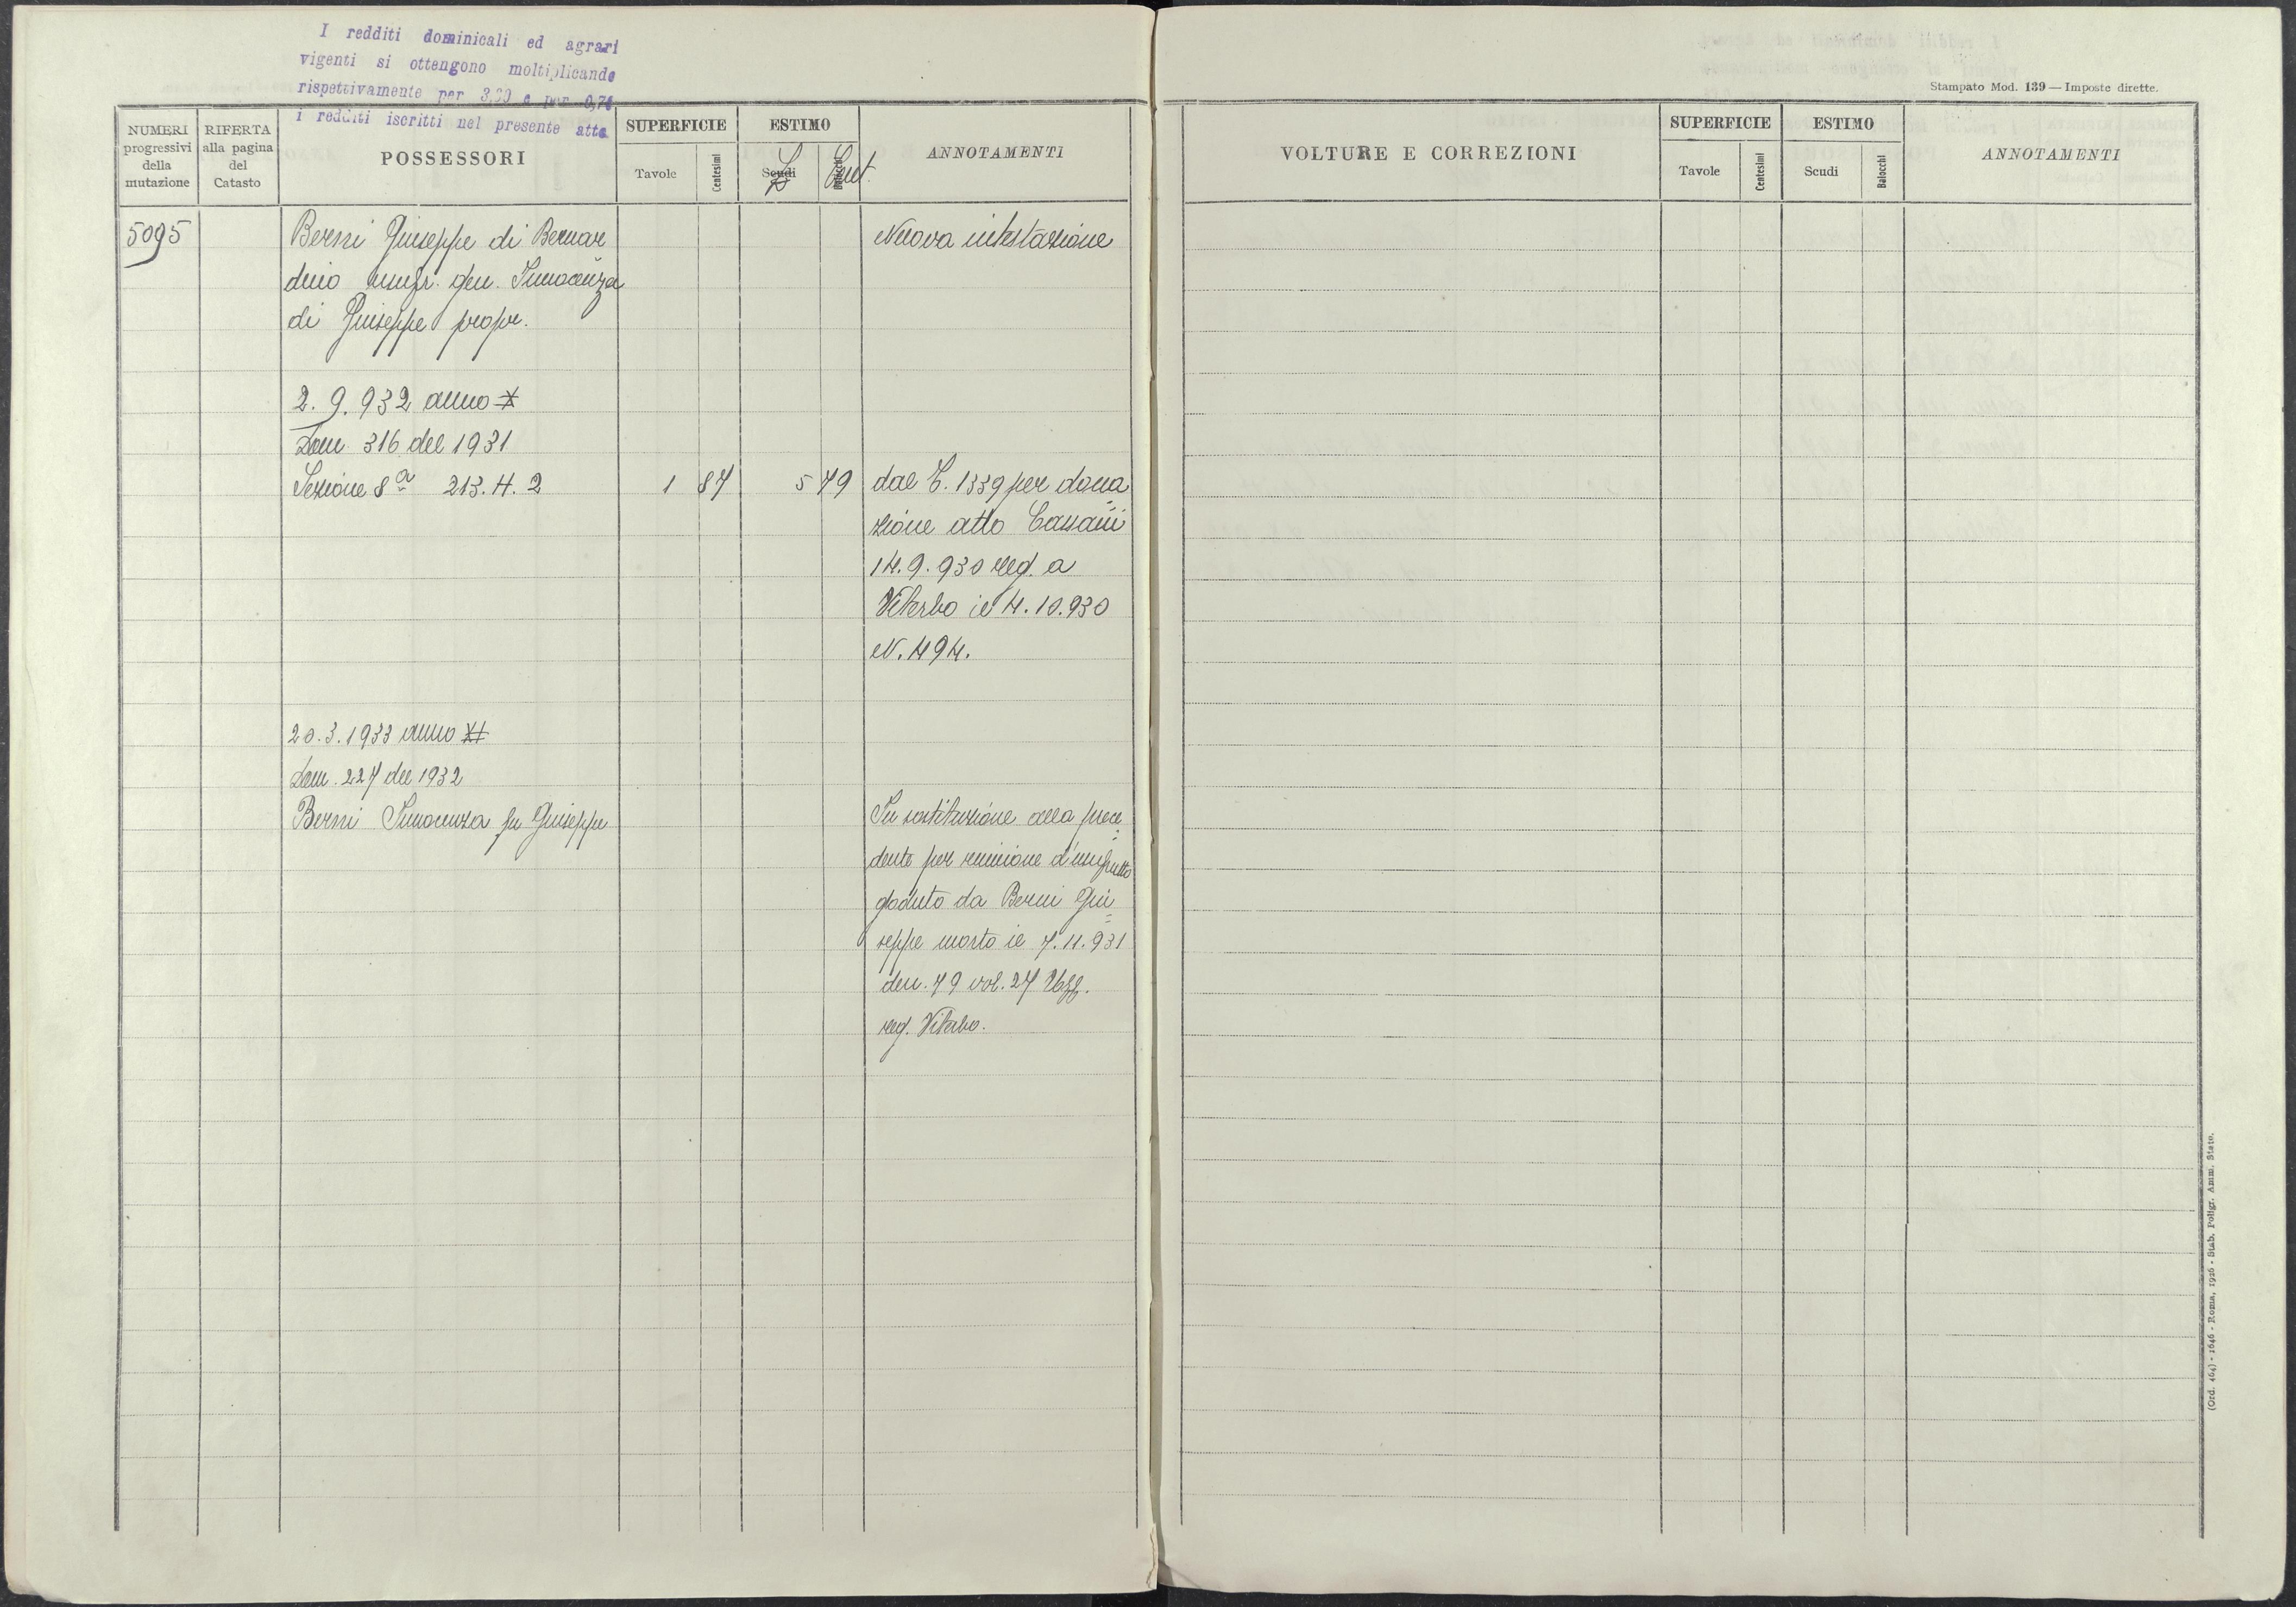 I redditi dominicali ed agrari
vigenti si ottengono moltiplicando
rispettivamente per 3,20 e per 0,74
i redditi iscritti nel presente atto
Stampato Mod. 139 — Imposte dirette.
NUMERI progressivi della mutazione
RIFERTA alla pagina del Catasto
POSSESSORI
SUPERFICIE
Tavole
Centesimi
ESTIMO
Scudi
Baiocchi
£
Cent.
ANNOTAMENTI
VOLTURE E CORREZIONI
SUPERFICIE
Tavole
Centesimi
ESTIMO
Scudi
Baiocchi
ANNOTAMENTI
5095 Berni Giuseppe di Bernar Nuova intestazione
dino usufr. gen. Innocenza
di Giuseppe propr.
2. 9. 932 anno X
Dom. 316 del 1931
Sezione 8ª 213. 4. 2 1 87 5 79 dal C. 1339 per dona
zione atto Cassani
14. 9. 930 reg. a
Viterbo il 4. 10. 930
N. 494.
20. 3. 1933 anno XI
Dom. 227 del 1932
Berni Innocenza fu Giuseppe In sostituzione alla prece=
dente per riunione d'usufrutto
goduto da Berni Giu=
seppe morto il 7. 11. 931
den. 79 vol. 27 Uff.
reg. Viterbo.
(Ord. 464) - 1646 - Roma, 1926 - Stab. Poligr. Amm. Stato.